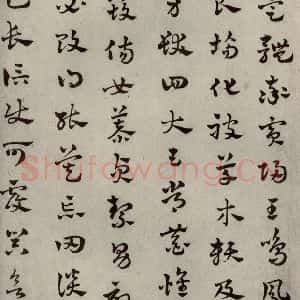 壹體率賓歸王鳴鳳
食場化被草木賴及
身髮四大五常恭惟
毀傷女慕貞潔男效
必改得能莫忘罔談
己長信使可覆器欲
Shufawang.Cn